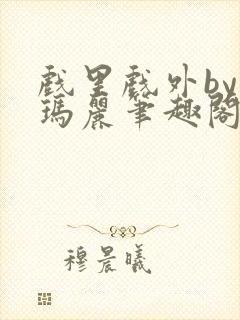 戲里戲外by
瑪麗筆趣閣
穆晨曦